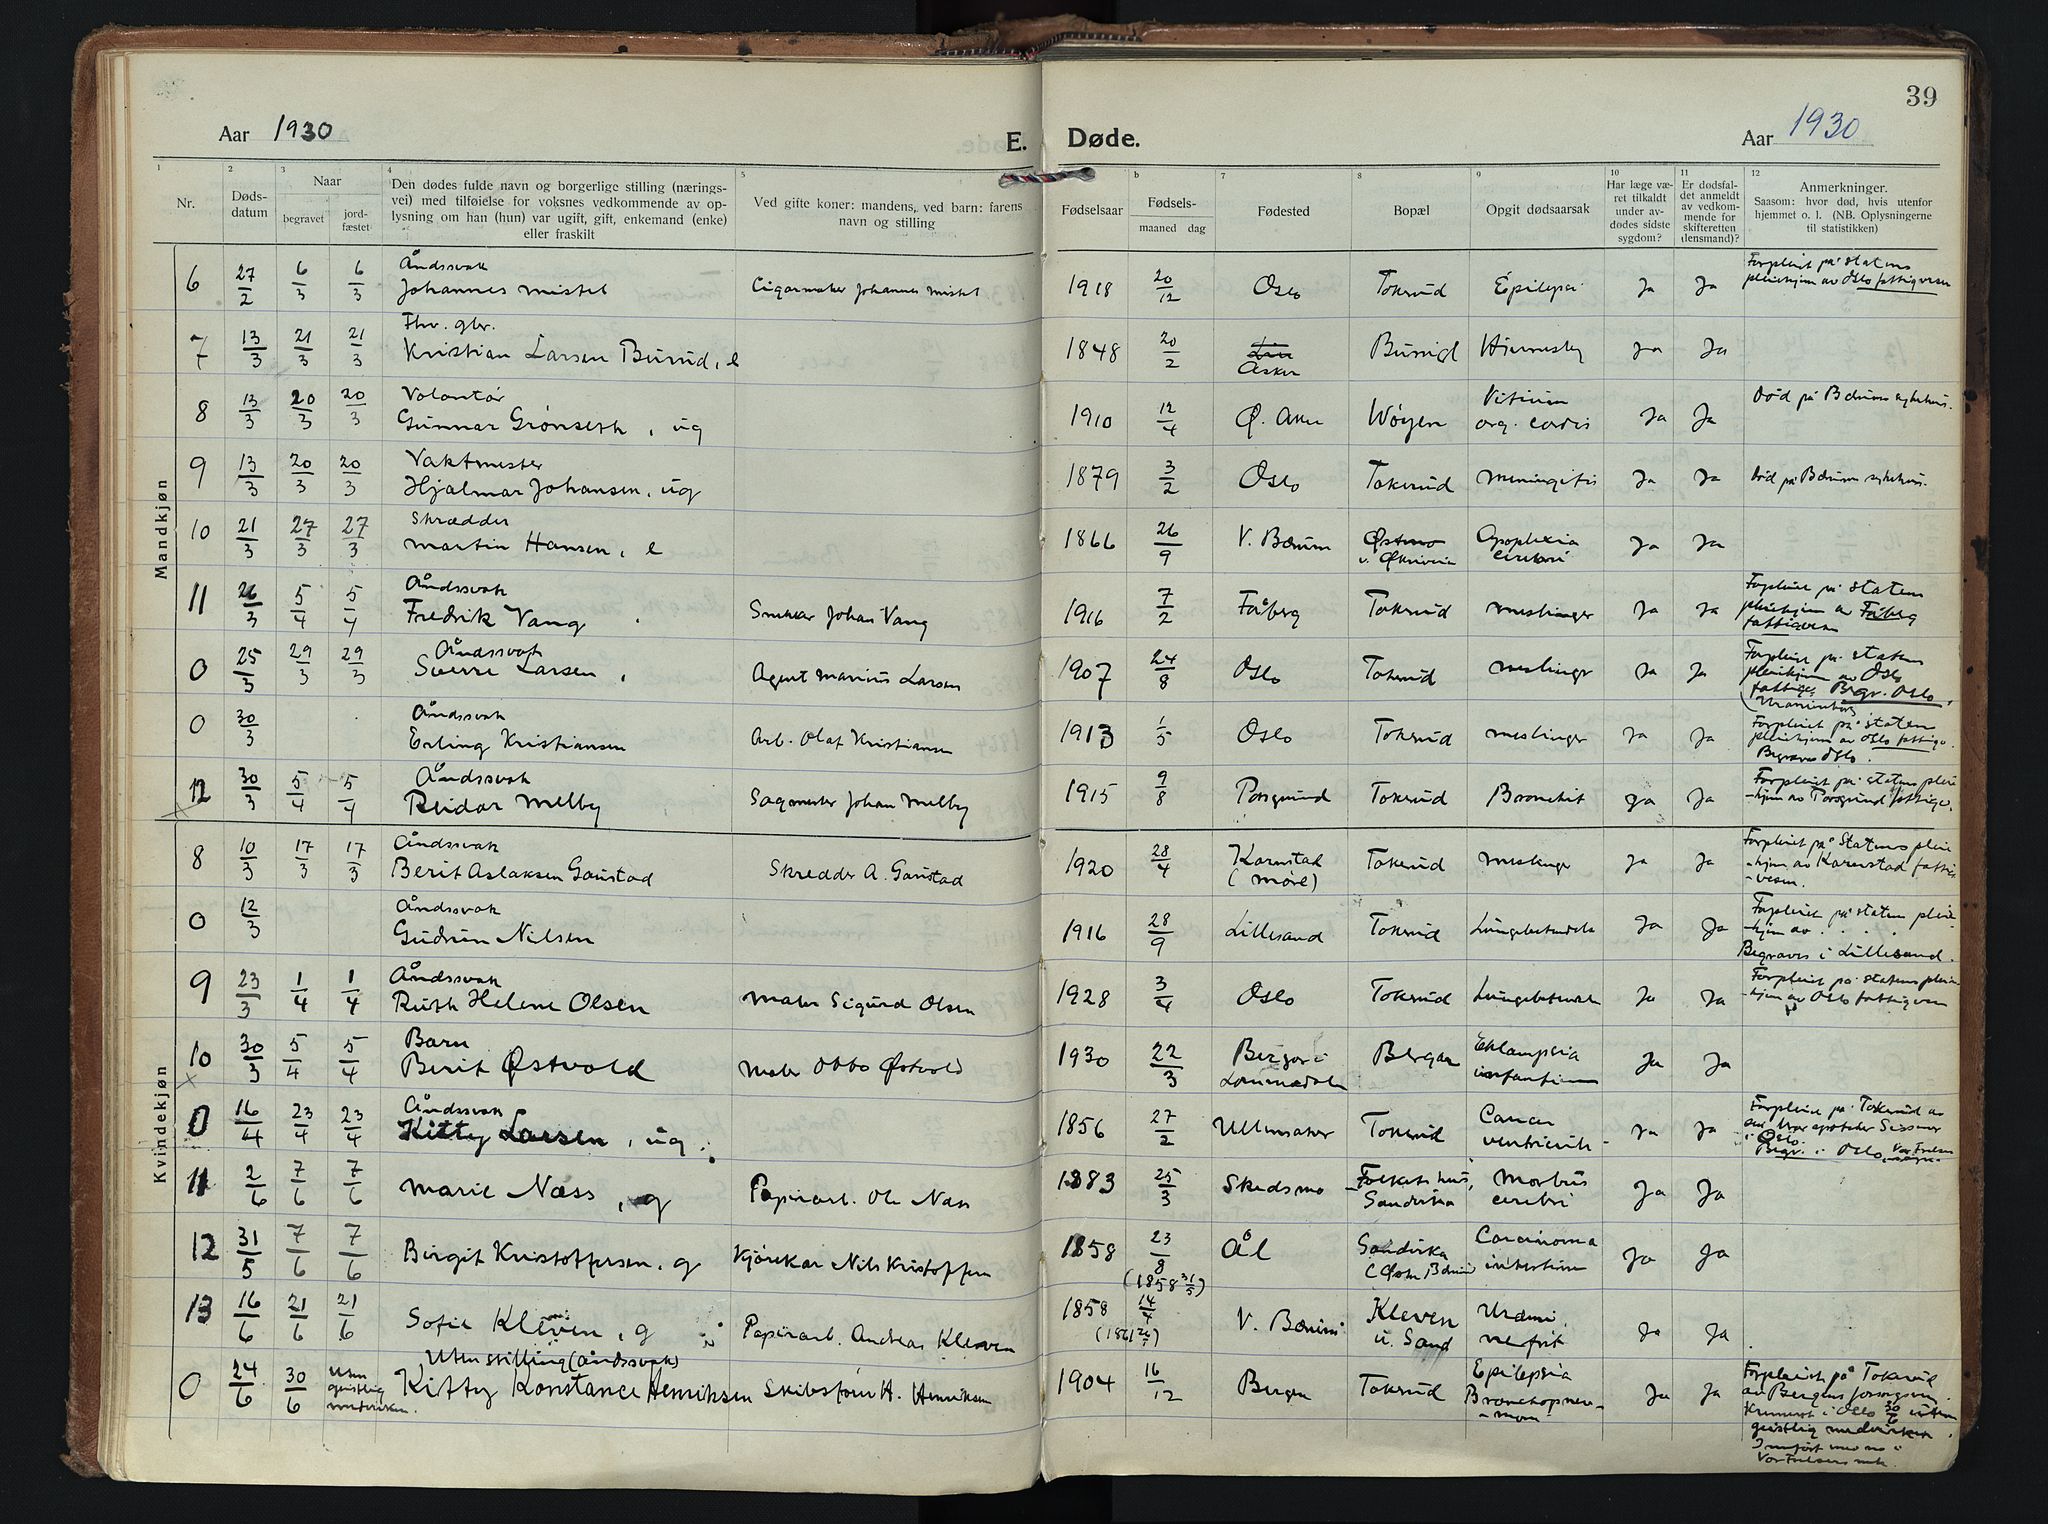 39
Aar 1930 E. Døde. Aar 1930
1 2 3 4 5 6 7 8 9 10 11 12
Nr. Døds-datum Naar begravet jord-fæstet Den dødes fulde navn og borgerlige stilling (nærings-vei) med tilføielse for voksnes vedkommende av op-lysning om han (hun) var ugift, gift, enkemand (enke) eller fraskilt Ved gifte koner: mandens, ved barn: farens navn og stilling Fødselsaar Fødsels- maaned dag Fødested Bopæl Opgit dødsaarsak Har læge væ-ret tilkaldt under av-dødes sidste sygdom? Er dødsfal-det anmeldt av vedkom-mende for skifteretten (lensmand)? Anmerkninger. Saasom: hvor død, hvis utenfor hjemmet o. l. (NB. Oplysningerne til statistikken)
Mandkjøn
6 27/2 6/3 6/3 Åndssvak Johannes Mistel Cigarmaker Johannes Mistel 1918 20/12 Oslo Tokerud Epilepsi Ja Ja Forpleiet på statens pleiehjem av Oslo fattigvesen
7 13/3 21/3 21/3 Fhv. gbr. Kristian Larsen Burud, e 1848 20/2 Asker Ja Ja
8 13/3 20/3 20/3 Volontør Gunnar Grønseth, ug 1910 12/4 Ø. Aker Wøyen Vitium org. cordis Ja Ja Død på Bærums sykehus.
9 13/3 20/3 20/3 Vaktmester Hjalmar Johansen, ug 1879 3/2 Oslo Tokerud Meningitis Ja Ja Død på Bærums sykehus.
10 21/3 27/3 27/3 Skrædder Martin Hansen, e 1866 26/9 V. Bærum Apoplexia cerebri Ja Ja
11 26/3 5/4 5/4 Åndssvak Fredrik Vang Snekker Johan Vang 1916 7/2 Fåberg Tokerud Meslinger Ja Ja Forpleiet på statens pleiehjem av Fåberg fattigvesen
0 25/3 29/3 29/3 Åndssvak Sverre Larsen, Agent Marius Larsen 1907 24/8 Oslo Tokerud Meslinger Ja Ja Forpleiet på statens pleiehjem av Oslo fattigv. Begr. Oslo, (Uranienborg
0 30/3 Åndssvak Erling Kristiansen Arb. Olaf Kristiansen 1913 1/5 Oslo Tokerud Meslinger Ja Ja Forpleiet på statens pleiehjem av Oslo fattigv. Begraves Oslo.
12 30/3 5/4 5/4 Åndssvak Reidar Melby Sagmester Johan Melby 1915 9/8 Porsgrund Tokerud Bronchit Ja Ja Forpleiet på statens pleie-hjem av Porsgrund fattigv.
Kvindekjøn
8 10/3 17/3 17/3 Åndssvak Berit Aslaksen Gaustad Skredder A. Gaustad 1920 28/4 Kornstad (Møre) Tokerud Meslinger Ja Ja Forpleiet på Statens pleie-hjem av Kornstad fattig-vesen.
0 12/3 Åndssvak Gudrun Nilsen 1916 28/9 Lillesand Tokerud Lungebetendelse Ja Ja Forpleiet på statens pleie-hjem av . . . . Begraves i Lillesand.
9 23/3 1/4 1/4 Åndssvak Ruth Helene Olsen Maler Sigurd Olsen 1928 3/4 Oslo Tokerud Lungebetendelse Ja Ja Forpleiet på statens pleie-hjem av Oslo fattigvesen
10 30/3 5/4 5/4 Barn Berit Østvold Maler Østvold 1930 22/3 Lommedalen Eklampsia infantium Ja Ja
0 16/4 23/4 23/4 Åndssvak Kitty Larsen, ug. 1856 27/2 Ullensaker Tokerud Cancer ventriculi Ja Ja Forpleiet på Tokerud av apoteker Oslo. Begr. i Oslo, Vor Frelsers
11 2/6 7/6 7/6 Marie Næss, g Papirarb. Ole Næss 1883 25/3 Skedsmo Folkets hus, Sandvika Morbus cerebri Ja Ja
12 31/5 7/6 7/6 Birgit Kristoffersen, g Kjørekar Nils Kristoffersen 1858 23/8 (1858 31/5) Ål Sandvika (Østre Bærum Carcinoma intestin Ja Ja
13 16/6 21/6 21/6 Sofie Kleven, g Papirarb. Andreas Kleven 1858 14/4 V. Bærum Kleven u. Sand Uræmi, nefrit Ja Ja
0 24/6 30/6 uten geistlig medvirken. Uten stilling (åndssvak) Kitty Konstance Henriksen Skibsfører H. Henriksen 1904 16/12 Bergen Tokerud Epilepsia Bronchopneu-moni Ja Ja Forpleiet på Tokerud av Bergens forsorgsv. Kremert i Oslo 30/6 uten geistlig medvirken. Innført i Vor Frelsers